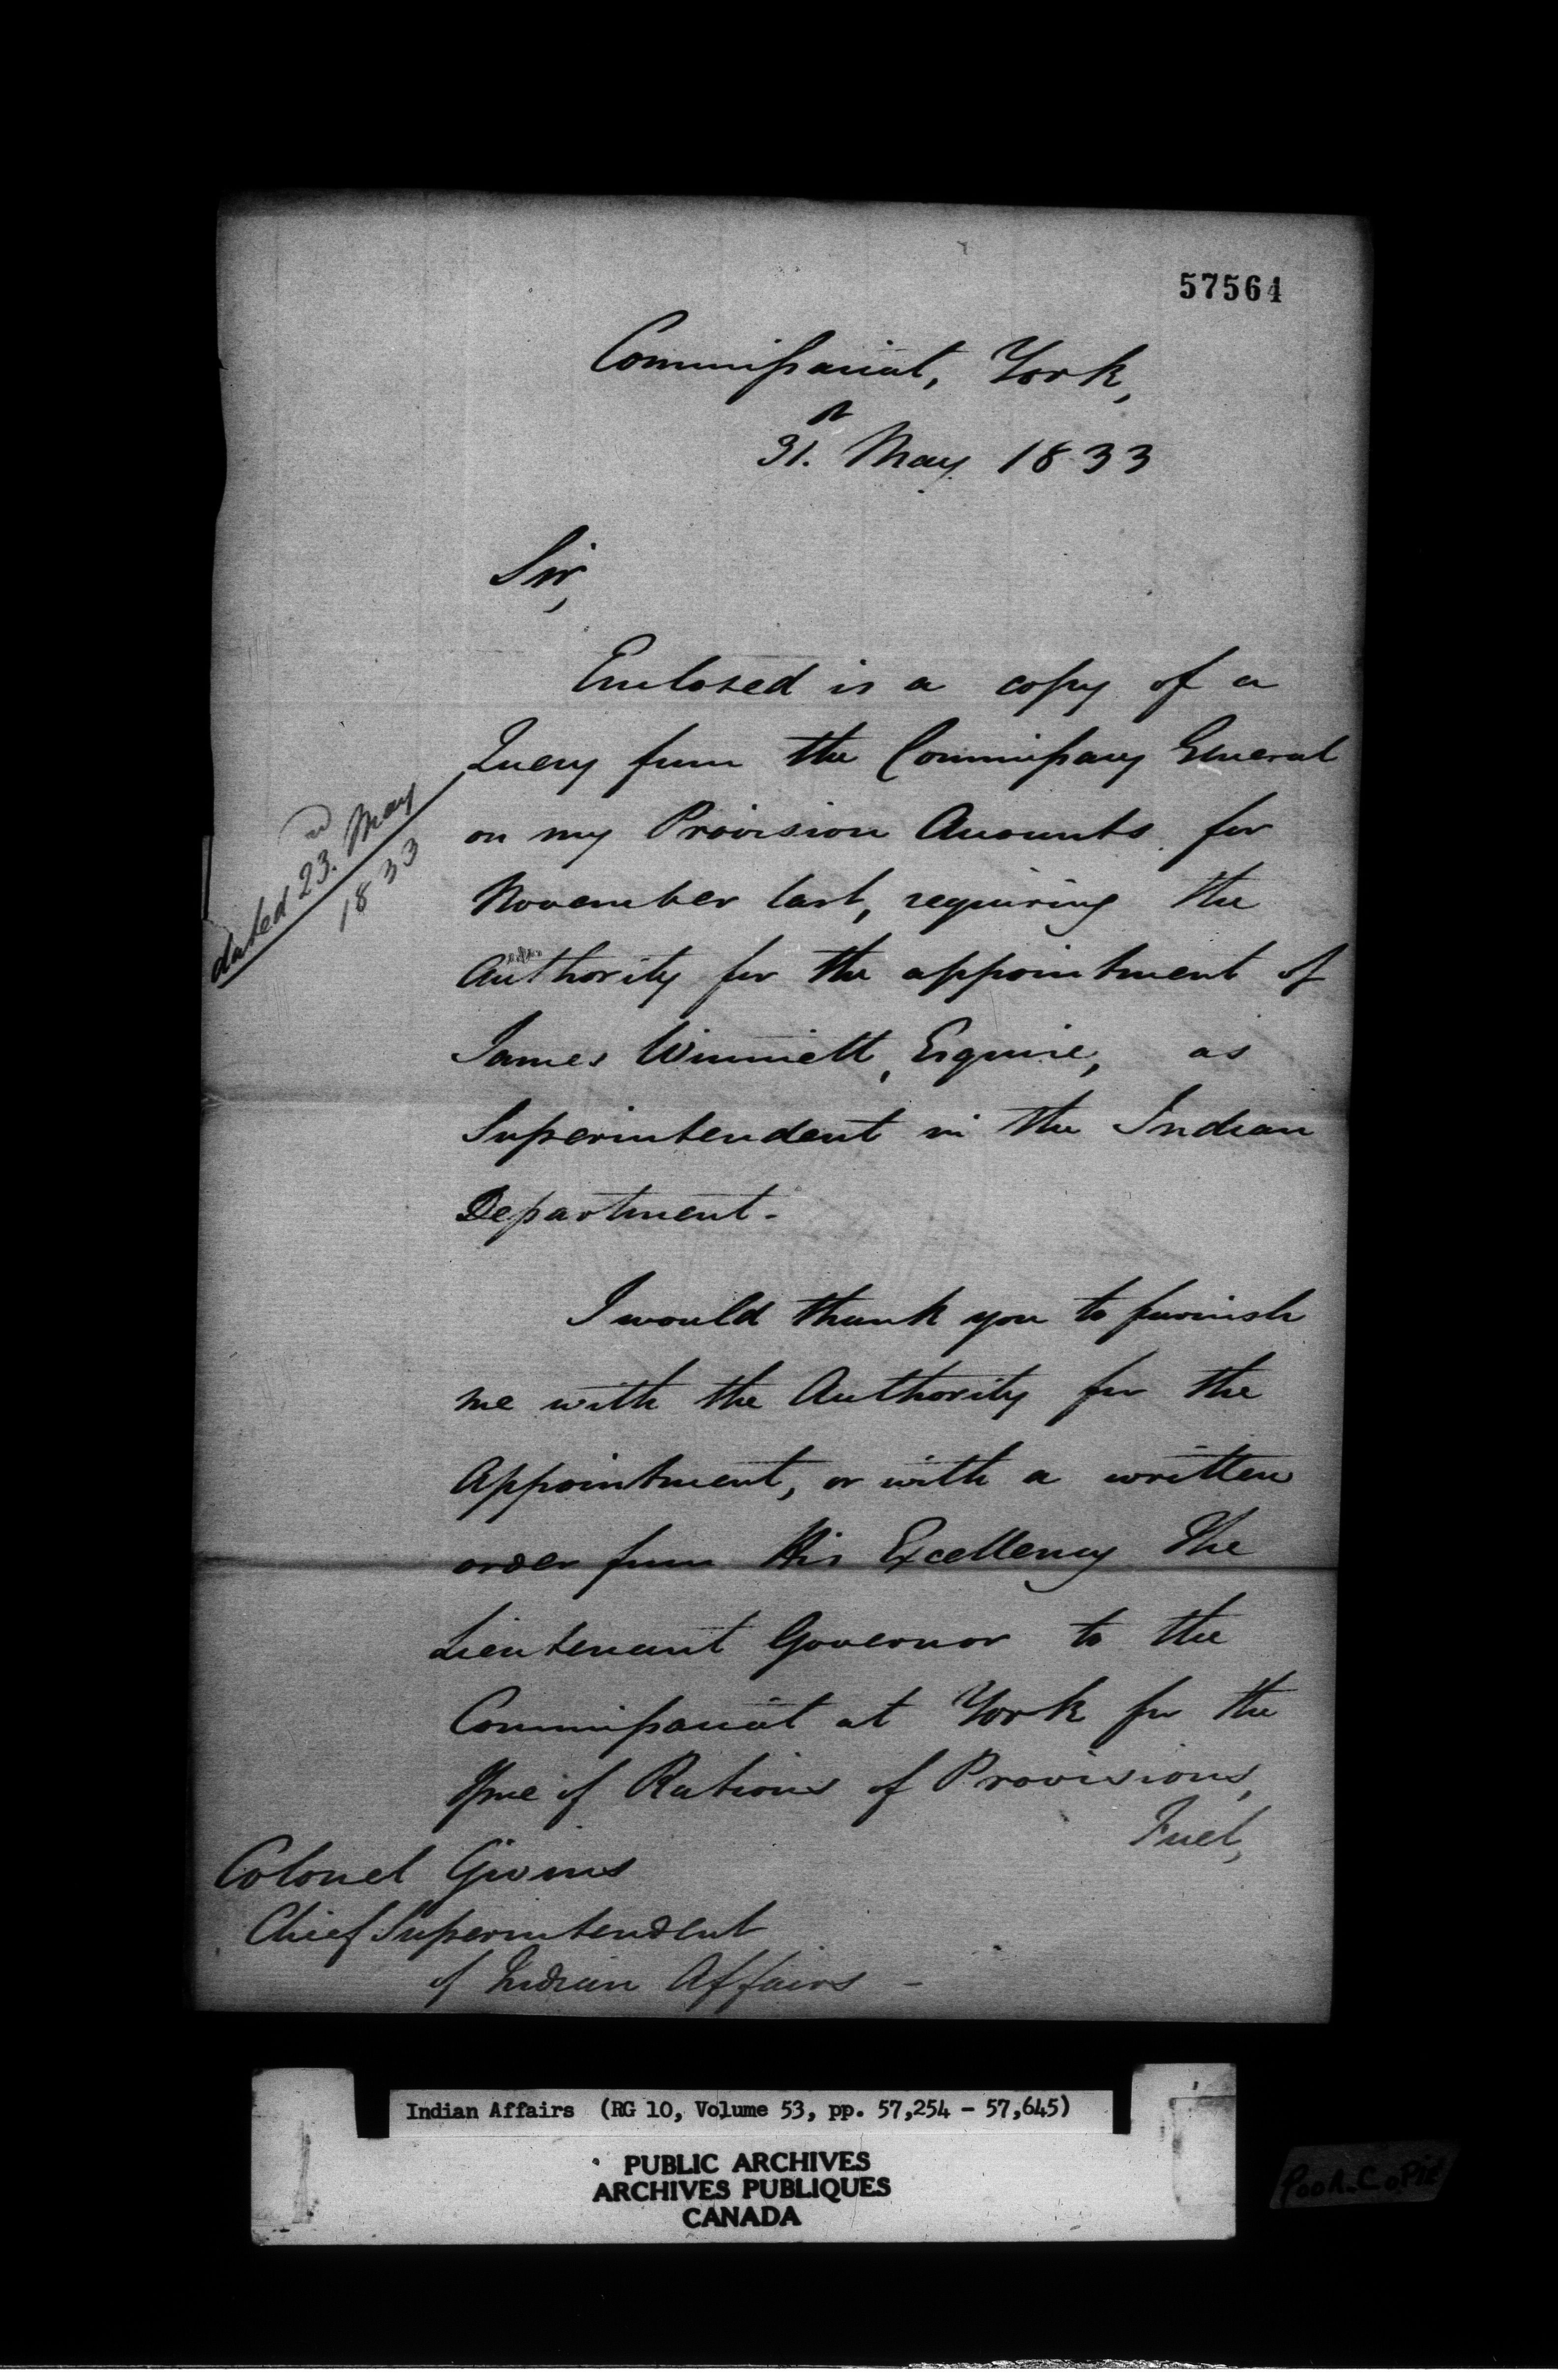 57564
Commissariat, York,
31st May 1833
Sir,
Enclosed is a copy of a
Query from the Commissary General
dated 23rd May
1833
on my Provision Accounts for
November last, requiring the
Authority for the appointment of
James Winniett, Esquire, as
Superintendent in the Indian
Department -
I would thank you to furnish
me with the Authority for the
Appointment, or with a written
order from His Excellency The
Lieutenant Governor to the
Commissariat at York for the
Issue of Rations of Provisions,
Fuel,
Colonel Givins
Chief Superintendent
of Indian Affairs -
Indian Affairs (RG 10, Volume 53, pp. 57,254 - 57,645)
PUBLIC ARCHIVES
ARCHIVES PUBLIQUES
CANADA
POOR COPIE